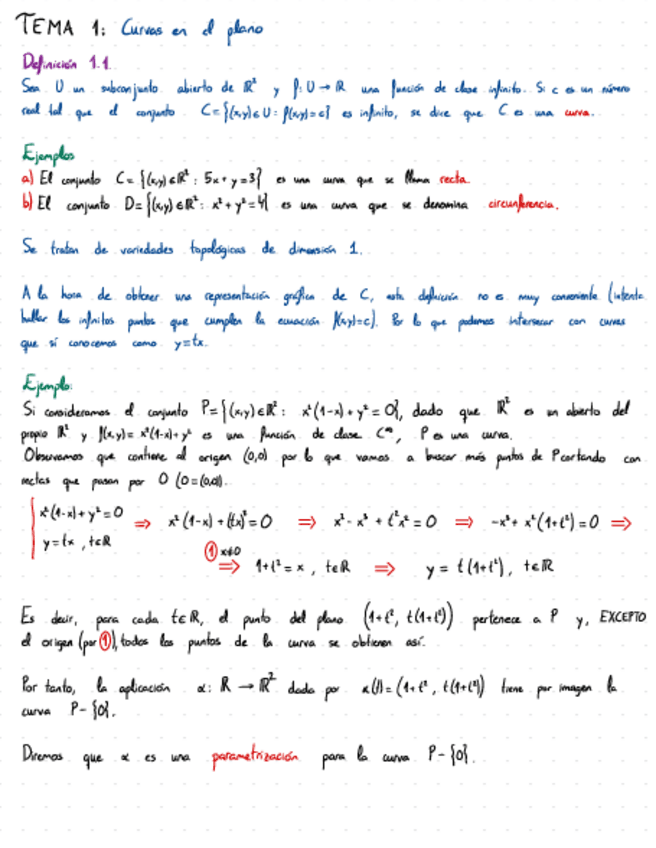 TEMA 1: Curvas en el plano
Definición 1.1.
Sea U un subconjunto abierto de ℝ² y f: U → ℝ una función de clase infinito. Si c es un número
real tal que el conjunto C = {(x,y) ∈ U : f(x,y) = c} es infinito, se dice que C es una curva.
Ejemplos
a) El conjunto C = {(x,y) ∈ ℝ² : 5x + y = 3} es una curva que se llama recta.
b) El conjunto D = {(x,y) ∈ ℝ² : x² + y² = 4} es una curva que se denomina circunferencia.
Se tratan de variedades topológicas de dimensión 1.
A la hora de obtener una representación gráfica de C, esta definición no es muy conveniente (intenta
hallar los infinitos puntos que cumplen la ecuación f(x,y)=c). Por lo que podemos intersecar con curvas
que sí conocemos como y=tx.
Ejemplo:
Si consideramos el conjunto P = {(x,y) ∈ ℝ² : x²(1-x) + y² = 0}, dado que ℝ² es un abierto del
propio ℝ² y f(x,y) = x²(1-x) + y² es una función de clase C^∞, P es una curva.
Observamos que contiene al origen (0,0) por lo que vamos a buscar más puntos de P cortando con
rectas que pasan por O (O=(0,0)).
x²(1-x) + y² = 0 ⇒ x²(1-x) + (tx)² = 0 ⇒ x² - x³ + t²x² = 0 ⇒ -x³ + x²(1+t²) = 0 ⇒
y = tx, t∈ℝ
① x≠0 ⇒ 1+t² = x, t∈ℝ ⇒ y = t(1+t²), t∈ℝ
Es decir, para cada t∈ℝ, el punto del plano (1+t², t(1+t²)) pertenece a P y, EXCEPTO
el origen (por ①), todos los puntos de la curva se obtienen así.
Por tanto, la aplicación α: ℝ → ℝ² dada por α(t) = (1+t², t(1+t²)) tiene por imagen la
curva P - {0}.
Diremos que α es una parametrización para la curva P - {0}.